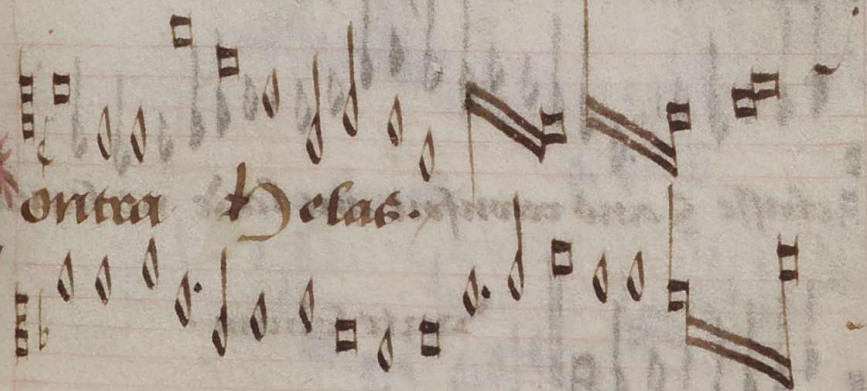 ontra Helas.